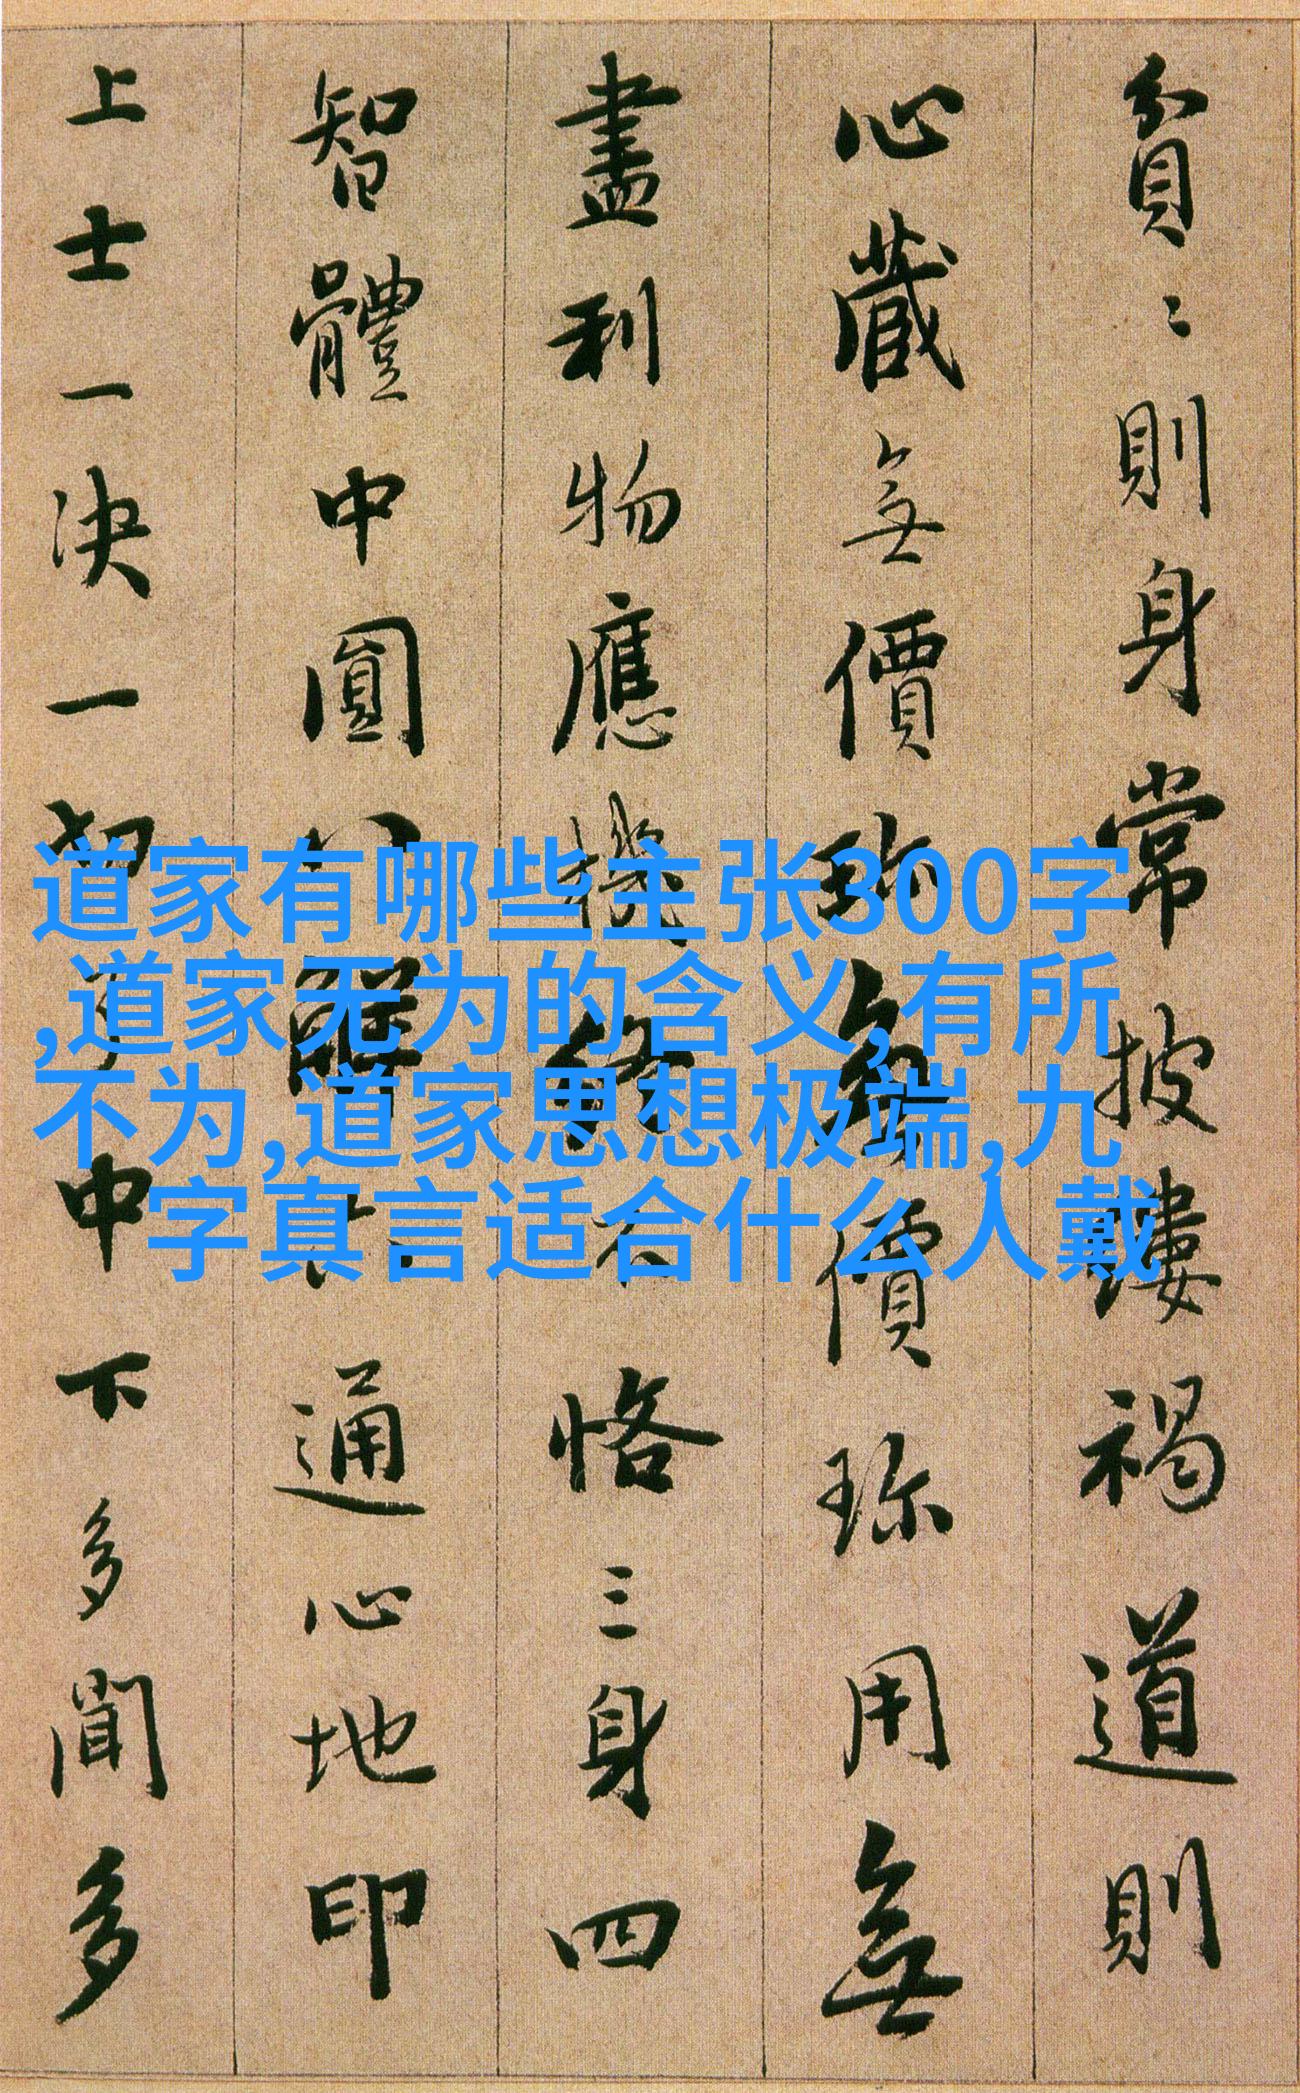 貧〻則身常披縷褐道則
心藏無價珎無價珎用無
盡利物應機終不恪三身四
智體中圓八解六通心地印
上士一决一切了中下多聞多
道家有哪些主张300字
,道家无为的含义,有所
不为,道家思想极端,九
字真言适合什么人戴